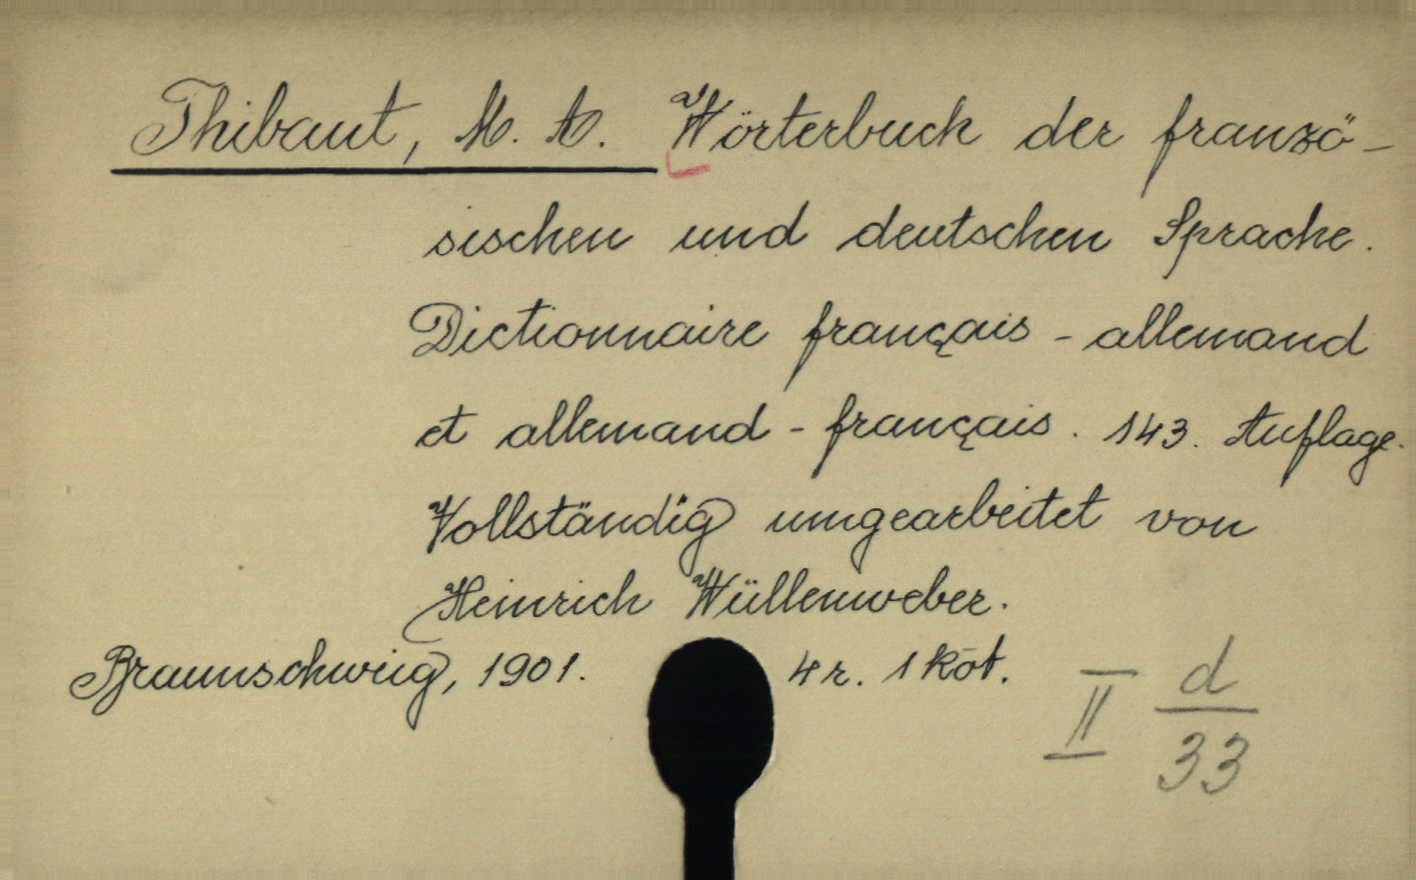 Thibaut, M. A. Wörterbuch der franzö-
sischen und deutschen Sprache.
Dictionnaire français - allemand
et allemand - français. 143. Auflage.
Vollständig umgearbeitet von
Heinrich Wüllenweber.
Braunschweig, 1901. 4 r. 1 köt.
II d/33